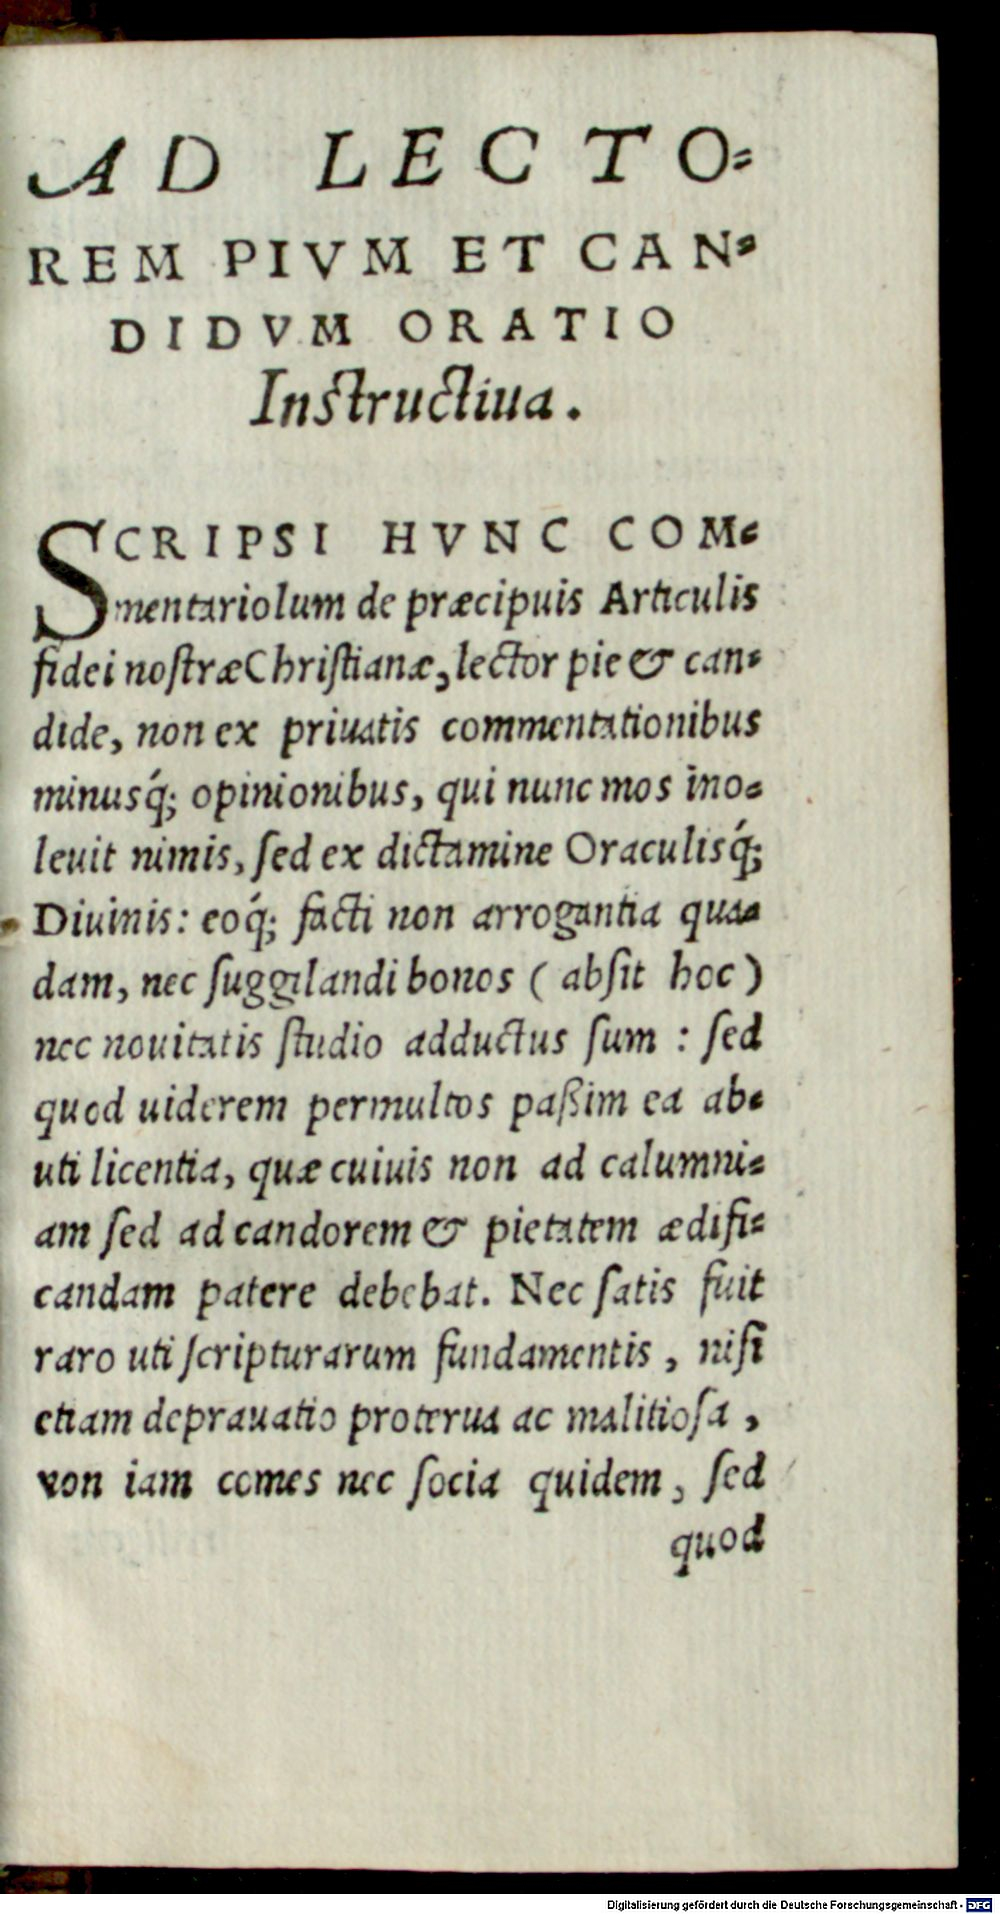 AD LECTO-
REM PIVM ET CAN-
DIDVM ORATIO
Instructiua.
SCRIPSI HVNC COM-
mentariolum de præcipuis Articulis
fidei nostræ Christianæ, lector pie & can-
dide, non ex priuatis commentationibus
minusq́; opinionibus, qui nunc mos ino-
leuit nimis, sed ex dictamine Oraculisq́;
Diuinis: eoq́; facti non arrogantia qua-
dam, nec suggilandi bonos ( absit hoc )
nec nouitatis studio adductus sum : sed
quod uiderem permultos paßim ea ab-
uti licentia, quæ cuiuis non ad calumni-
am sed ad candorem & pietatem ædifi-
candam patere debebat. Nec satis fuit
raro uti scripturarum fundamentis, nisi
etiam deprauatio proterua ac malitiosa,
non iam comes nec socia quidem, sed
quod
Digitalisierung gefördert durch die Deutsche Forschungsgemeinschaft - DFG